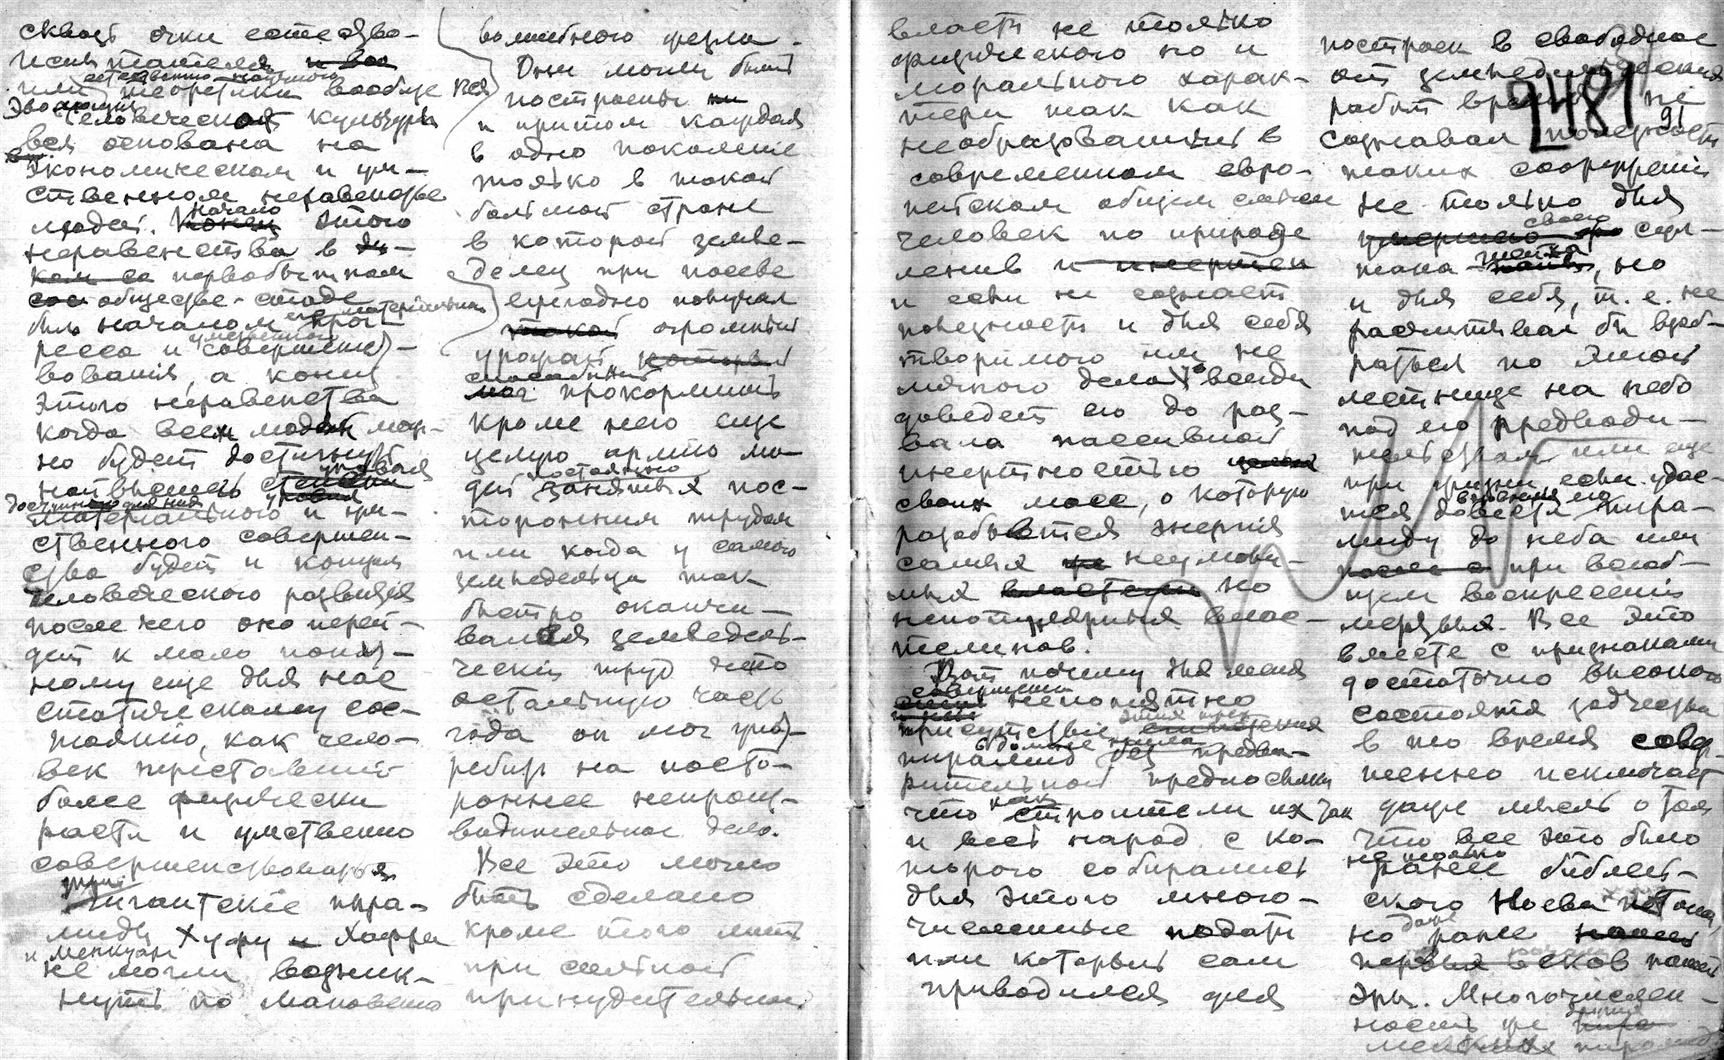 сквозь очки естествоис-
пытателя
или теоретика вообще
естественно научного
Эволюция
Человеческая культура вся
вся основана на
экономическом и ум-
ственном неравенстве
людей. Начало этого
неравенства в
первобытном
обществе-стаде
был началом его материальн
прог-
ресса и умственного совершенст-
вования, а конец
этого неравенства
когда всем людям мож-
но будет достигнуть
наивысшаго уровня
доступного для них
матерiального и ум-
ственного совершен-
ства будет и концом
человеческого развития
после чего оно перей-
дет к мало понят-
ному еще для нас
статическому сос-
тоянию, как чело-
век переставший
более физически
расти и умственно
совершенствоваться.
Эти
Гигантские пира-
миды Хуфу и Хафра
и Менкури
не могли возник-
нуть по мановению
волшебного жезла.
Они могли быть
построены
и притом каждая
в одно поколение
только в такой
большой стране
в которой земле-
делец при посеве
ежегодно получал
огромный
урожай
способный
прокормить
кроме него еще
целую армию лю-
дей постоянно
занятых пос-
торонним трудом
или когда у самого
земледельца так
быстро оканчи-
вался земледель-
ческий труд что
остальную часть
года он мог упот-
ребить на посто-
роннее непроиз-
водительное дело.
Все это могло
быть сделано
кроме того лишь
при сильной
принудительной
власти не только
физического но и
морального харак-
тера так как
необразованный в
современном евро-
пейском общем смысле
человек по природе
ленив и инертен
и если не сознает
полезности и для себя
творимого им не
личного дела то всегда
доведет его до раз-
вала пассивной
инертностью
своих масс, о которую
разобьется энергия
самых неумоли-
мых но
непопулярных влас-
телинов.
Вот почему для меня
совершенно
непонятно
присутствие этих трех
пирамид в долине Нила
без предва-
рительной предпосылки
что как строители их так
и весь народ с ко-
торого собирались
для этого много-
численные подати
или который сам
приводился для
построек в свободное
от земледельческих
работ время не
2481
91
сознавал полезности
таких сооружений
не только для
своего сул-
тана , но
и для себя, т. е. не
расчитывал бы взоб-
раться по этой
лестнице на небо
под его предводи-
тельством или еще
при жизни если удас-
тся довести пира-
миду до неба или
при всеоб-
щем воскресении
мертвых. Все это
вместе с признаками
достаточно высокого
состояния зодчества
в то время совер-
шенно исключает
даже мысль о том
что все это было
не только
ранее библей-
ского Ноева потопа,
но даже ранее
первых веков нашей
эры. Многочислен-
ность же других